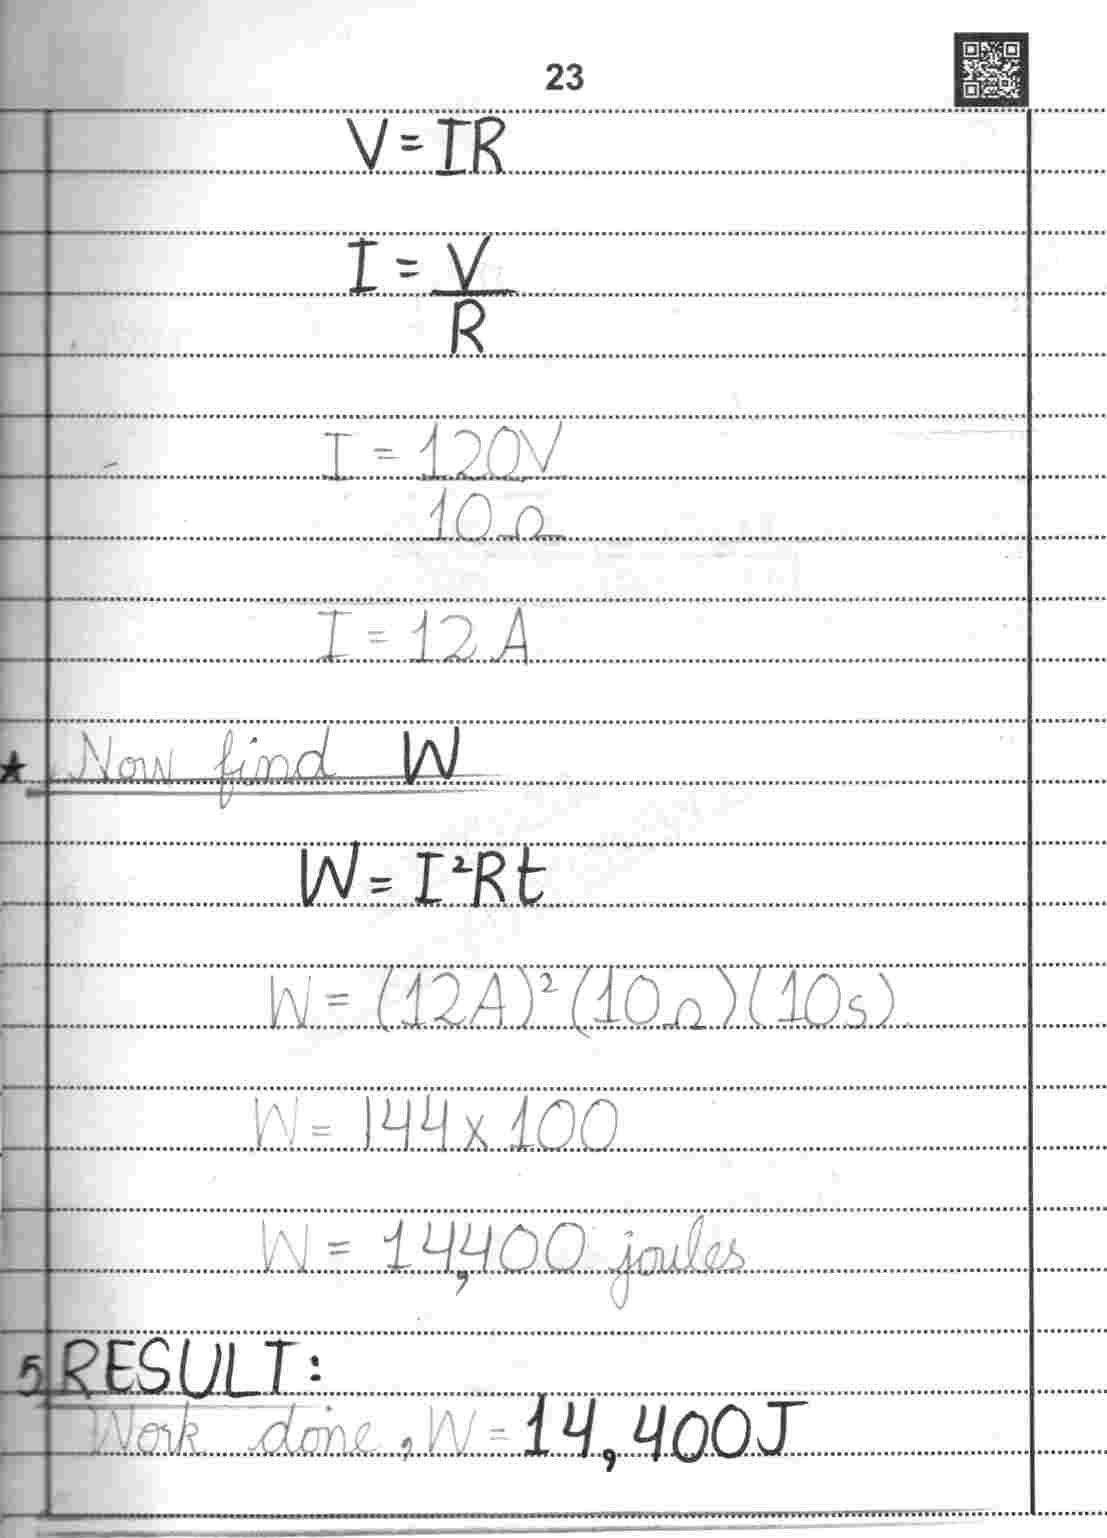 23
V = IR
I = V
R
I = 120V
10Ω
I = 12 A
★ Now find W
W = I²Rt
W = (12A)² (10Ω) (10s)
W = 144 x 100
W = 14,400 joules
5 RESULT:
Work done, W = 14,400J